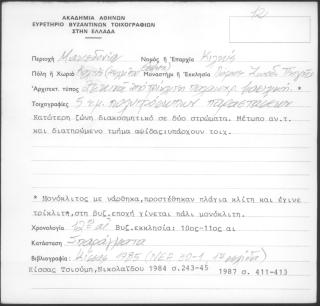 12
ΑΚΑΔΗΜΙΑ ΑΘΗΝΩΝ
ΕΥΡΕΤΗΡΙΟ ΒΥΖΑΝΤΙΝΩΝ ΤΟΙΧΟΓΡΑΦΙΩΝ
ΣΤΗΝ ΕΛΛΑΔΑ
Περιοχή Μακεδονία Νομός ή Επαρχία Κιλκίς
Πόλη ή Χωριό Μοναστήρι ή Εκκλησία Πηγής
Αρχιτεκτ. τύπος βασιλική *
Τοιχογραφίες 5 τ.μ. πολυπρόσωπων παραστάσεων
Κατώτερη ζώνη διακοσμητικό σε δύο στρώματα. Μέτωπο αν.τ.
και διατηούμενο τμήμα αψίδας:υπάρχουν τοιχ.
* Μονόκλιτος με νάρθηκα,προστέθηκαν πλάγια κλίτη και έγινε
τρίκλιτη,στη βυζ.εποχή γίνεται πάλι μονόκλιτη.
Χρονολογία 12ος αι Βυζ.εκκλησία: 10ος-11ος αι
Κατάσταση Σπαράγματα
Βιβλιογραφία Κίσσας 1985
Κίσσας Τσιούμη,Νικολαΐδου 1984 σ.243-45 1987 σ. 411-413